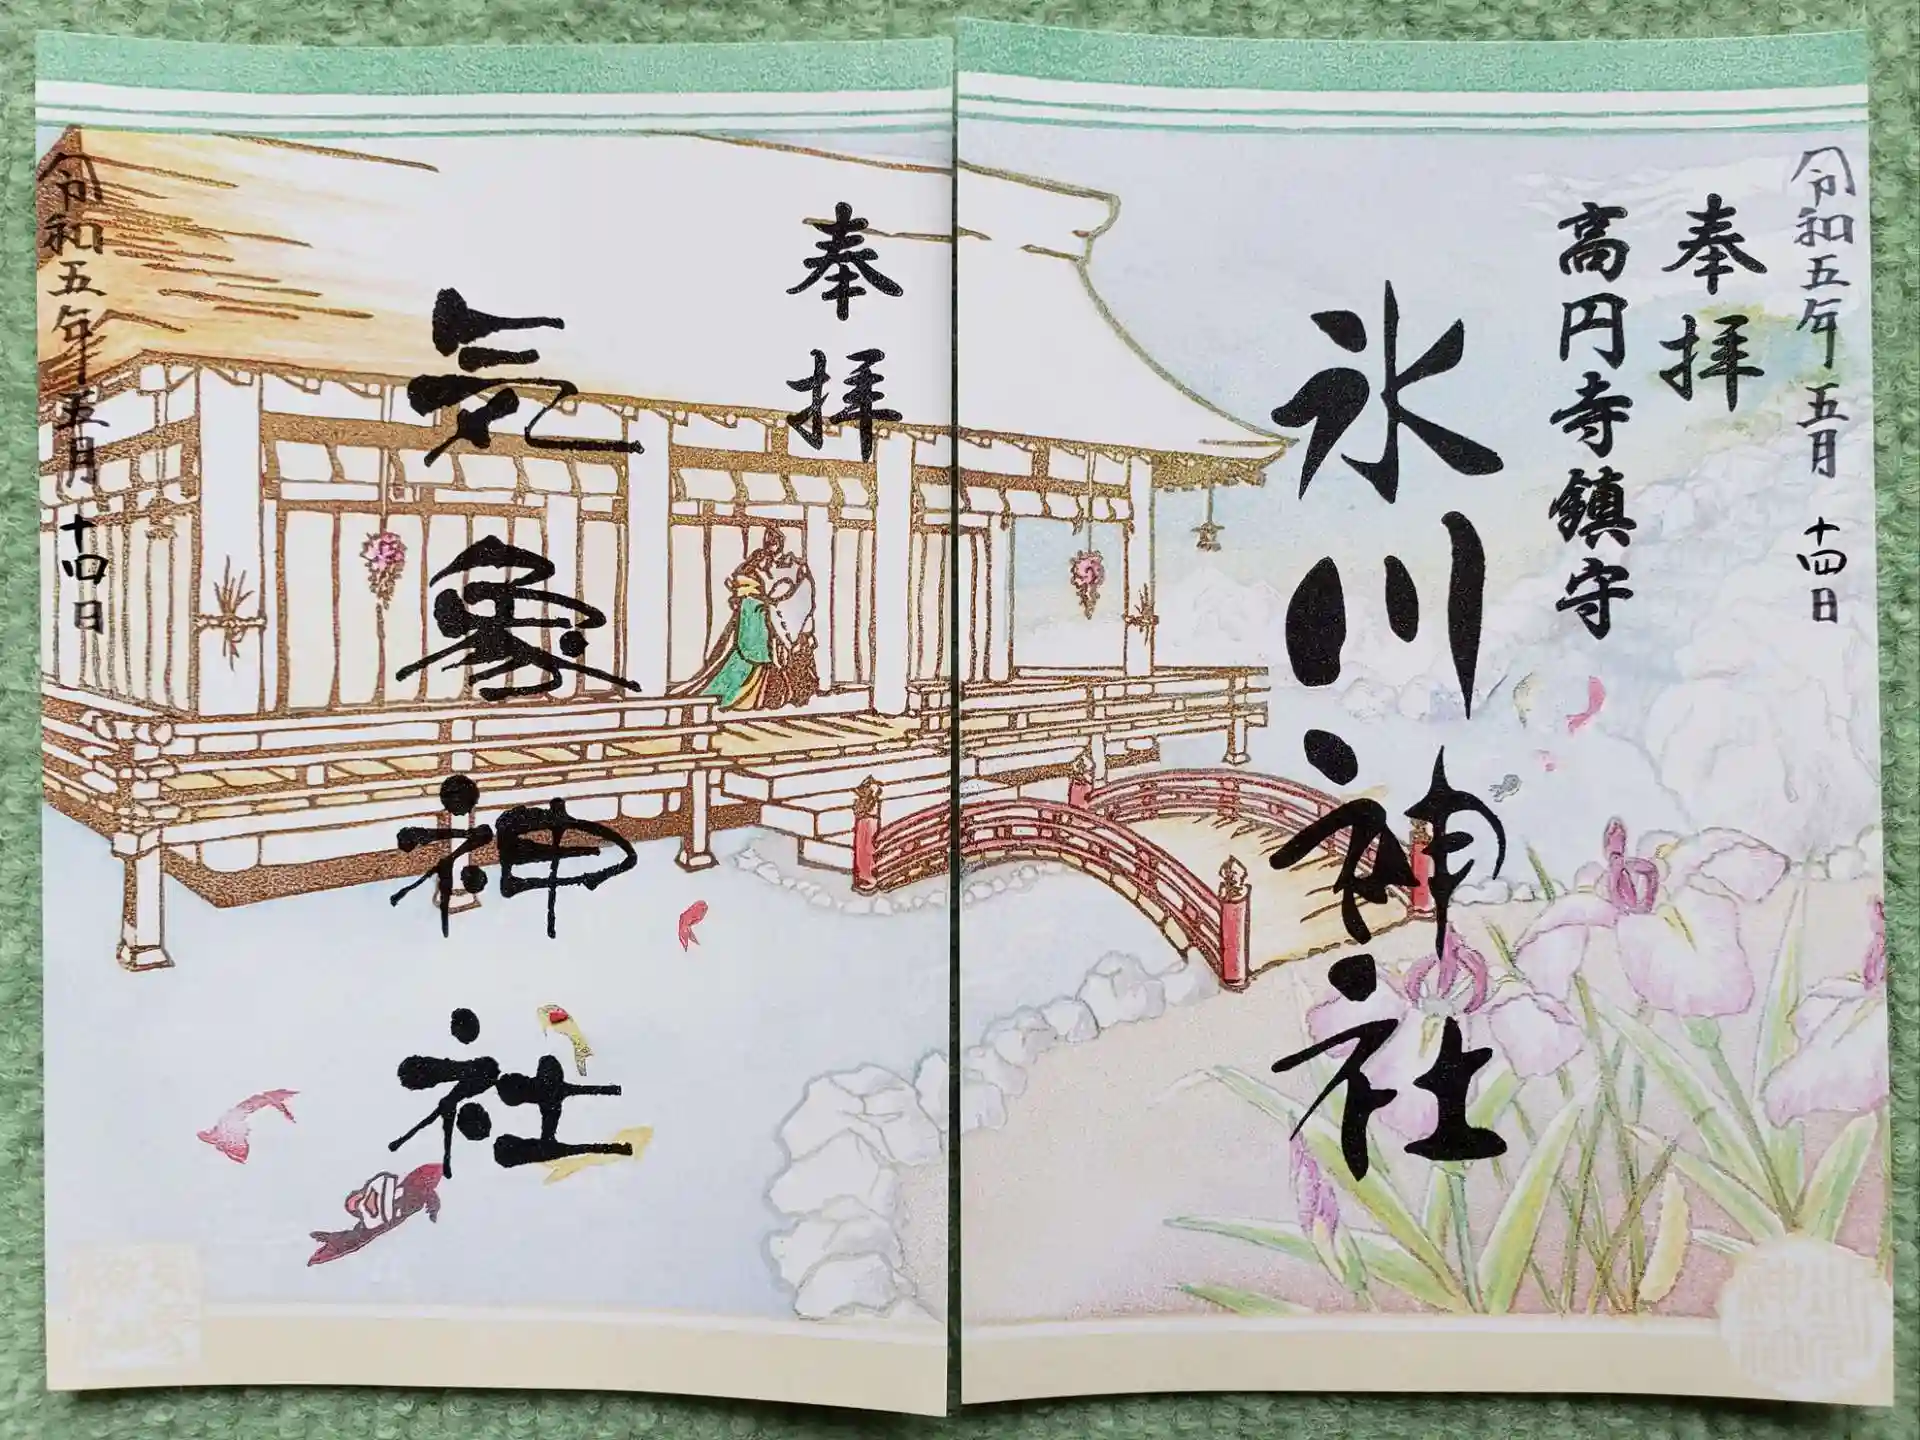 令和五年 五月 十四日
奉拝
高円寺鎮守
氷川神社
奉拝
気象神社
令和五年五月十四日